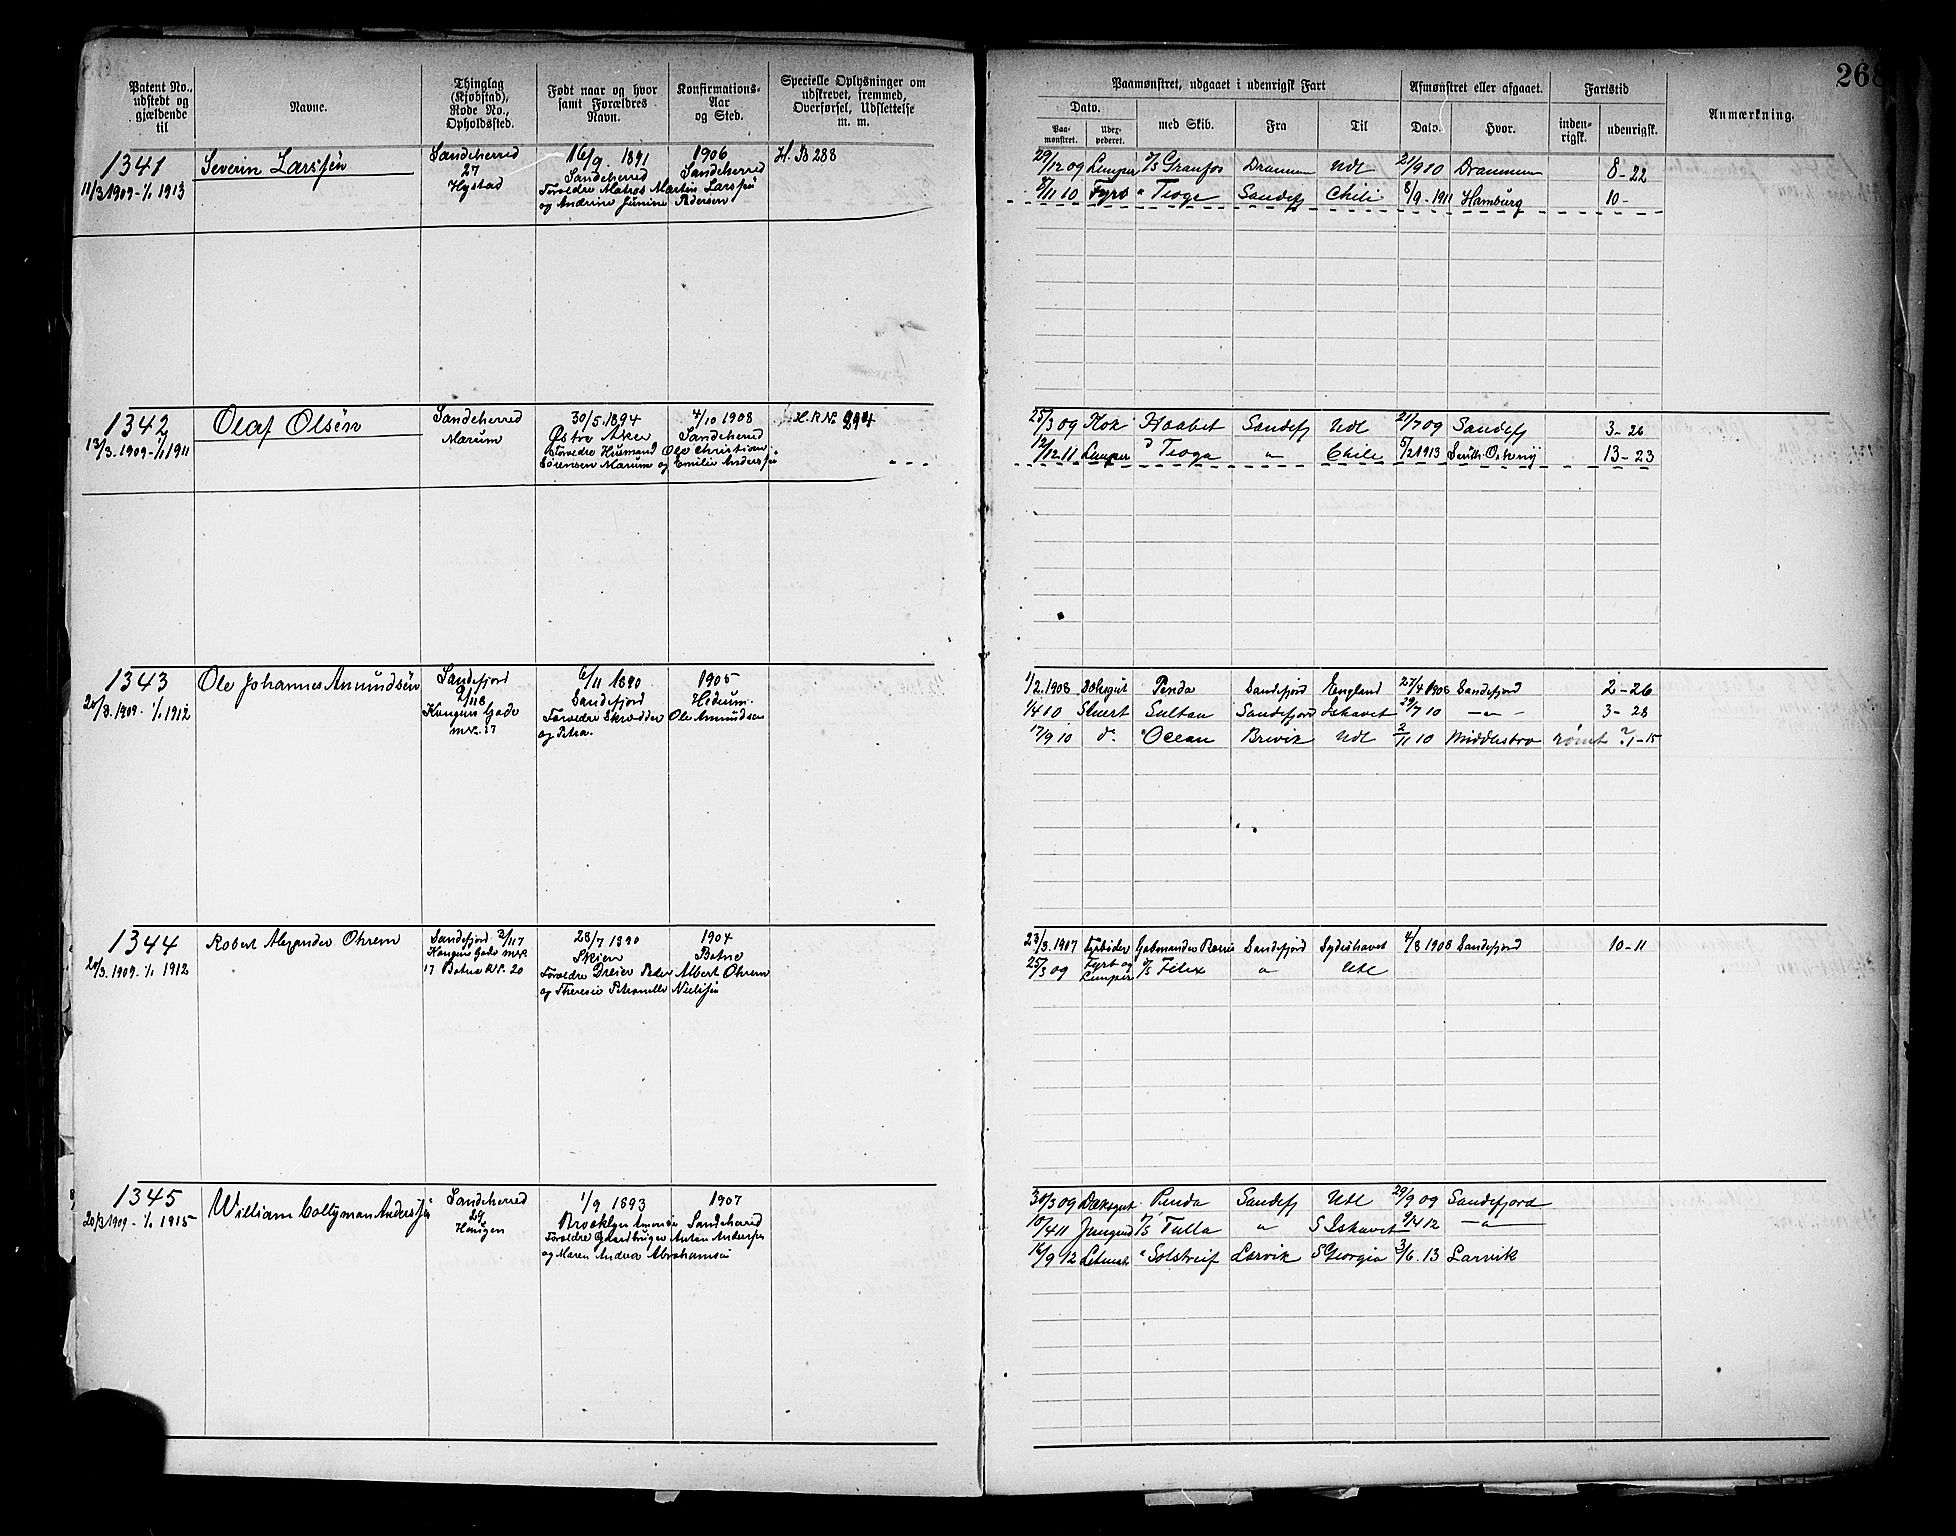 268
Patent No., udstedt og gjældende til
Navne.
Thinglag (Kjøbstad), Rode No., Opholdssted.
Født naar og hvor samt Forældres Navn.
Konfirmations-Aar og Sted.
Specielle Oplysninger om udskrevet, fremmed, Overførsel, Udslettelse m. m.
Paamønstret, udgaaet i udenrigsk Fart
Afmønstret eller afgaaet.
Fartstid
Anmærkning.
Dato.
Paa-mønstret.
med Skib.
Fra
Til
Dato.
Hvor.
inden-rigsk.
udenrigsk.
1341 Severin Larssen Sandeherred 16/9 1891 1906 H. B 288
11/3 1909 - 1/1 1913 27 Sandeherred Sandeherred
Hystad Forældre Matros Martin Larssen
og Andrine Jumine Pedersen
29/12 09 Lemper Granfos Drammen Udl 21/9 10 Drammen 8 - 22
5/11 10 Fyrb " Tioga Sandefj Chili 8/9 - 1911 Hamburg 10 -
1342 Olaf Olsen Sandeherred 30/5 1894 4/10 1908 H. R No 294
13/3 - 1909 - 1/1 1911 Marum Østre Aker Sandeherred
Forældre Husmand Ole Christian
Sørensen Marum og Emilie Anderssen
25/3 09 Kok Haabet Sandefj Udl 21/7 09 Sandefj 3 - 26
12/12 11 Lemper Tioga " Chile 5/2 1913 13 - 23
1343 Ole Johannes Amundsen Sandefjord 6/11 1890 1905
20/3. 1909 - 1/1 1912 2/118 Sandefjord Hedrum.
Kongens Gade Forældre Skrædder Ole Amundsen
mrk. 17 og Petra.
1/2. 1908 Penda Sandefjord England 27/4 1908 Sandefjord 2 - 26
1/4 10 Stuert Sultan Sandefjord Ishavet 29/7 10 - " - 3 - 28
17/9 10 do " Ocean Brevik Udl 2/11 10 Middlesbro rømt ? 1 - 15
1344 Robert Alexander Ohrem Sandefjord 2/117 28/7 1890 1904
20/3. 1909 - 1/1 1912 Kongens Gade mrk. Skien Botne
17 Botne R.No. 20 Forældre Dreier Peder Albert Ohrem
og Theresie Petronelle Nielssen
23/3. 1907 Fyrbøder Sandefjord Sydishavet 4/8 1908 Sandefjord 10 - 11
25/3 09 Fyrb og Lemper Felix " Udl
1345 William Coltyman Anderssen Sandeherred 1/9 1893 1907
20/3 1909 - 1/1 1915 29 Brooklyn Amerika Sandeherred
Haugen Forældre Gaardbruger Anton Anderssen
og Maren Andrea Abrahamsen
30/3 09 Dæksgut Penda Sandefj Udl 29/9 09 Sandefjord
10/4 11 Jungmd Tulla " S Ishavet 9/4 12 - " -
16/9 12 Letmat " Solstreif Larvik S Georgia 3/6. 13 Larvik